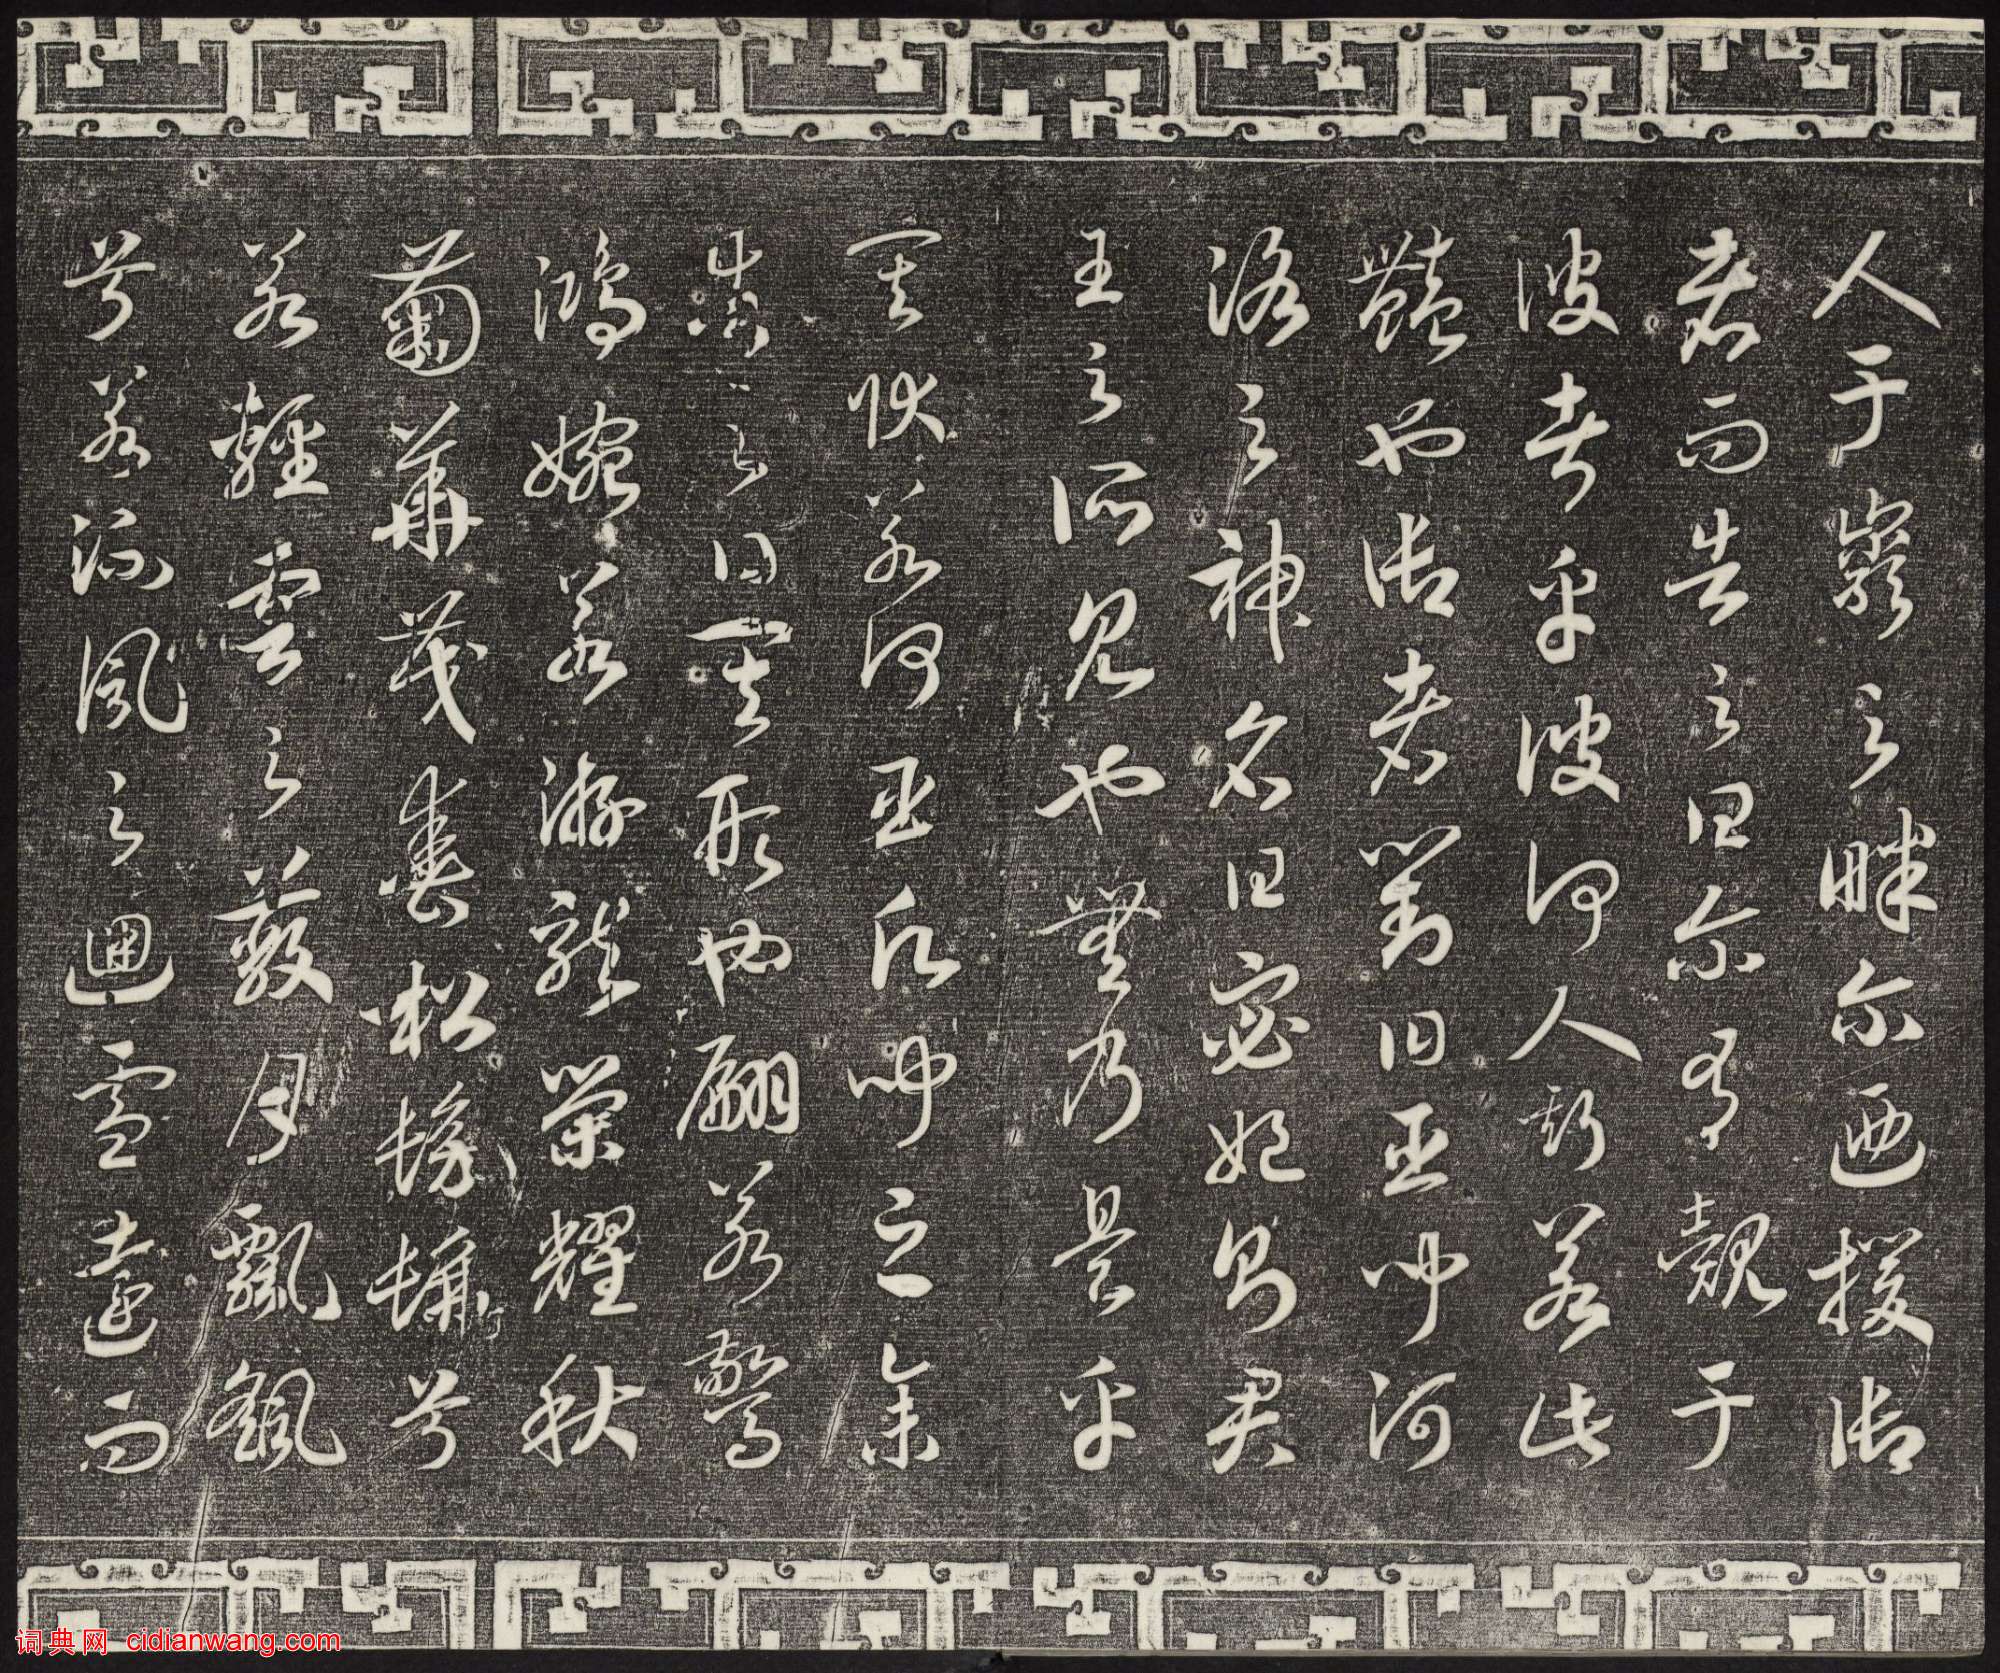 人于巖之畔尒迺援御
者而告之曰尒有覿于
彼者乎彼何人斯若此
豔也御者對曰臣聞河
洛之神名曰宓妃則君
王之所見也無乃是乎
其狀若何臣願聞之余
告之曰其形也翩若驚
鴻婉若游龍榮耀秋
菊華茂春松髣髴兮
若輕雲之蔽月飄颻
兮若流風之迴雪遠而
词典网 cidianwang.com